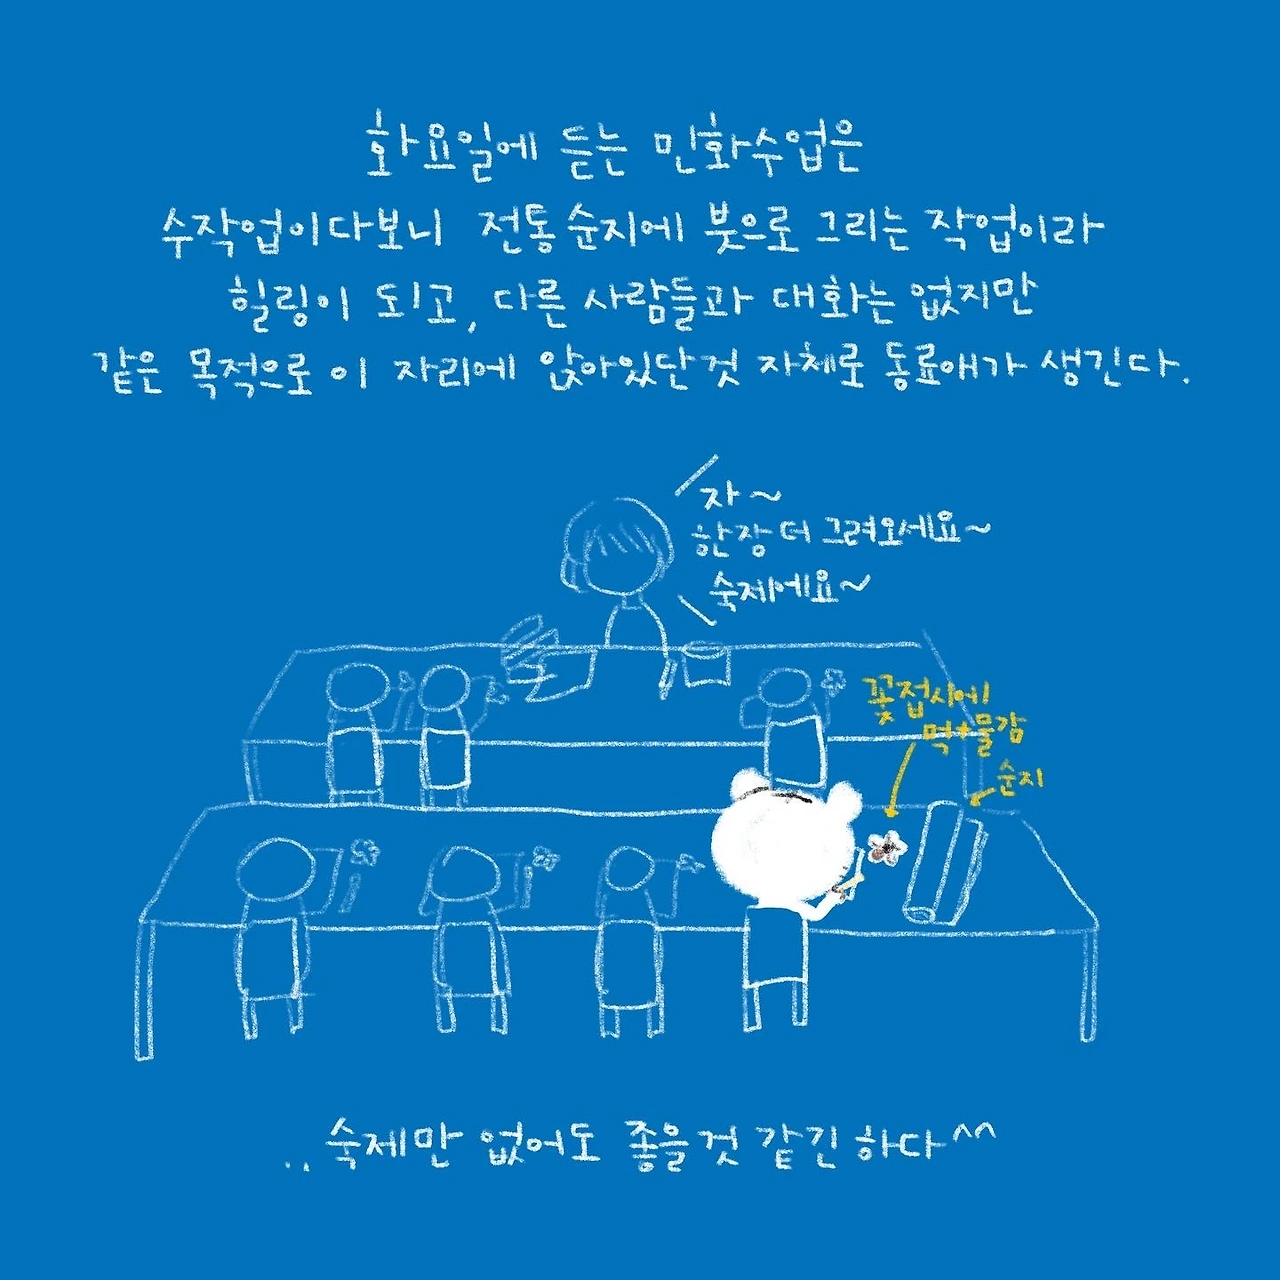 화요일에 듣는 민화수업은
수작업이다보니 전통순지에 붓으로 그리는 작업이라
힐링이 되고, 다른 사람들과 대화는 없지만
같은 목적으로 이 자리에 앉아있단것 자체로 동료애가 생긴다.
자~
한장 더 그려오세요~
숙제에요~
꽃접시에
먹+물감
순지
..숙제만 없어도 좋을것 같긴 하다^^